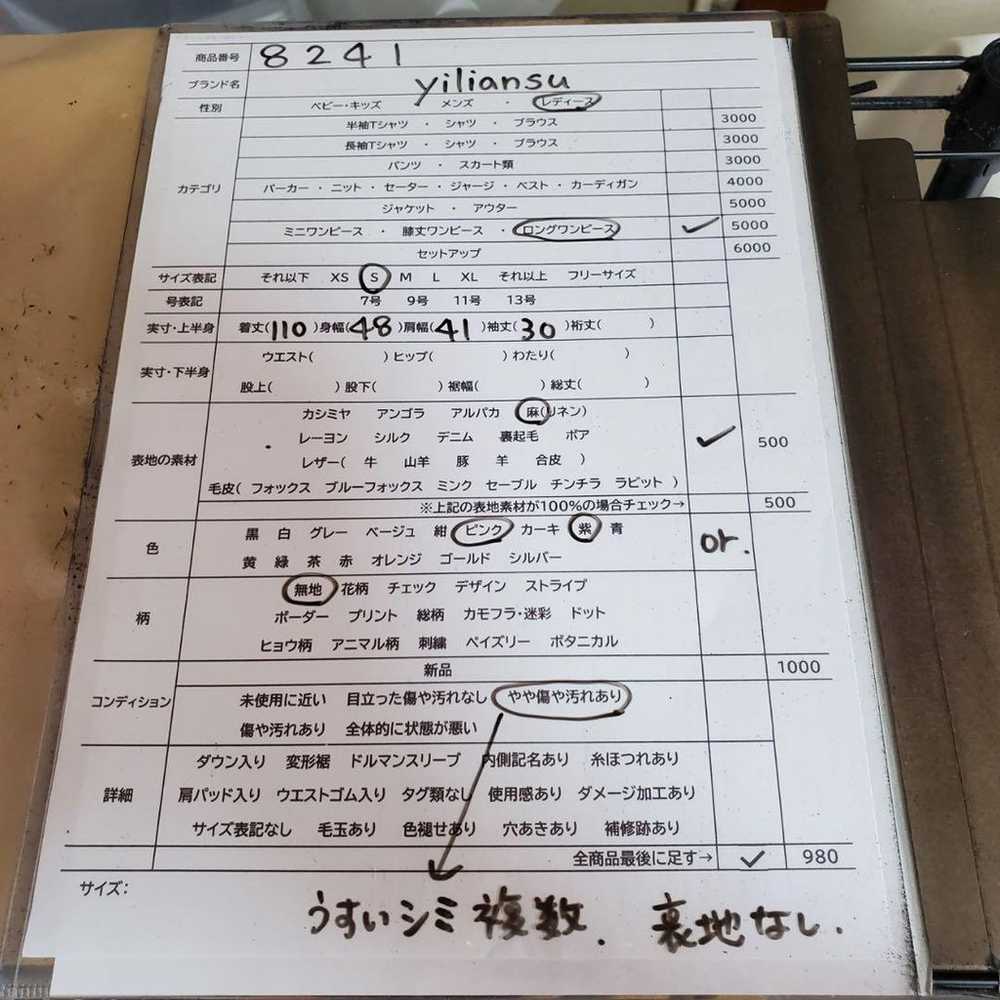 商品番号 8241
ブランド名 yiliansu
性別 ベビー・キッズ メンズ ・ レディース
半袖Tシャツ ・ シャツ ・ ブラウス 3000
長袖Tシャツ ・ シャツ ・ ブラウス 3000
パンツ ・ スカート類 3000
カテゴリ パーカー ・ ニット ・ セーター ・ ジャージ ・ ベスト ・ カーディガン 4000
ジャケット ・ アウター 5000
ミニワンピース ・ 膝丈ワンピース ・ ロングワンピース ✓ 5000
セットアップ 6000
サイズ表記 それ以下 XS S M L XL それ以上 フリーサイズ
号表記 7号 9号 11号 13号
実寸・上半身 着丈(110)身幅(48)肩幅(41)袖丈(30)裄丈( )
ウエスト( )ヒップ( )わたり( )
実寸・下半身
股上( )股下( )裾幅( )総丈( )
カシミヤ アンゴラ アルパカ 麻(リネン)
レーヨン シルク デニム 裏起毛 ボア ✓ 500
表地の素材 レザー( 牛 山羊 豚 羊 合皮 )
毛皮( フォックス ブルーフォックス ミンク セーブル チンチラ ラビット )
※上記の表地素材が100%の場合チェック→ 500
黒 白 グレー ベージュ 紺 ピンク カーキ 紫 青
色 or.
黄 緑 茶 赤 オレンジ ゴールド シルバー
無地 花柄 チェック デザイン ストライプ
柄 ボーダー プリント 総柄 カモフラ・迷彩 ドット
ヒョウ柄 アニマル柄 刺繍 ペイズリー ボタニカル
新品 1000
コンディション 未使用に近い 目立った傷や汚れなし やや傷や汚れあり
傷や汚れあり 全体的に状態が悪い
ダウン入り 変形裾 ドルマンスリーブ 内側記名あり 糸ほつれあり
詳細 肩パッド入り ウエストゴム入り タグ類なし 使用感あり ダメージ加工あり
サイズ表記なし 毛玉あり 色褪せあり 穴あきあり 補修跡あり
全商品最後に足す→ ✓ 980
サイズ:
うすいシミ複数. 裏地なし.